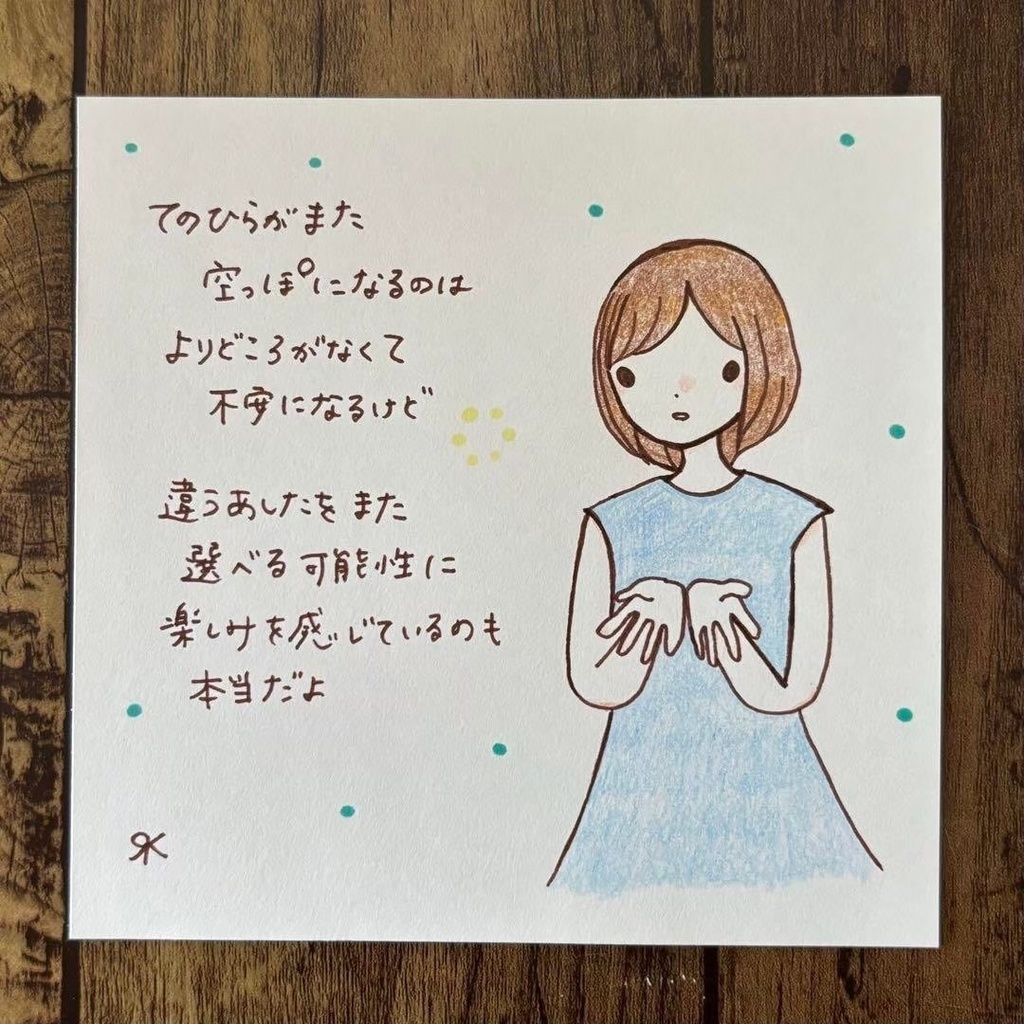 てのひらがまた
空っぽになるのは
よりどころがなくて
不安になるけど
違うあしたをまた
選べる可能性に
楽しみを感じているのも
本当だよ